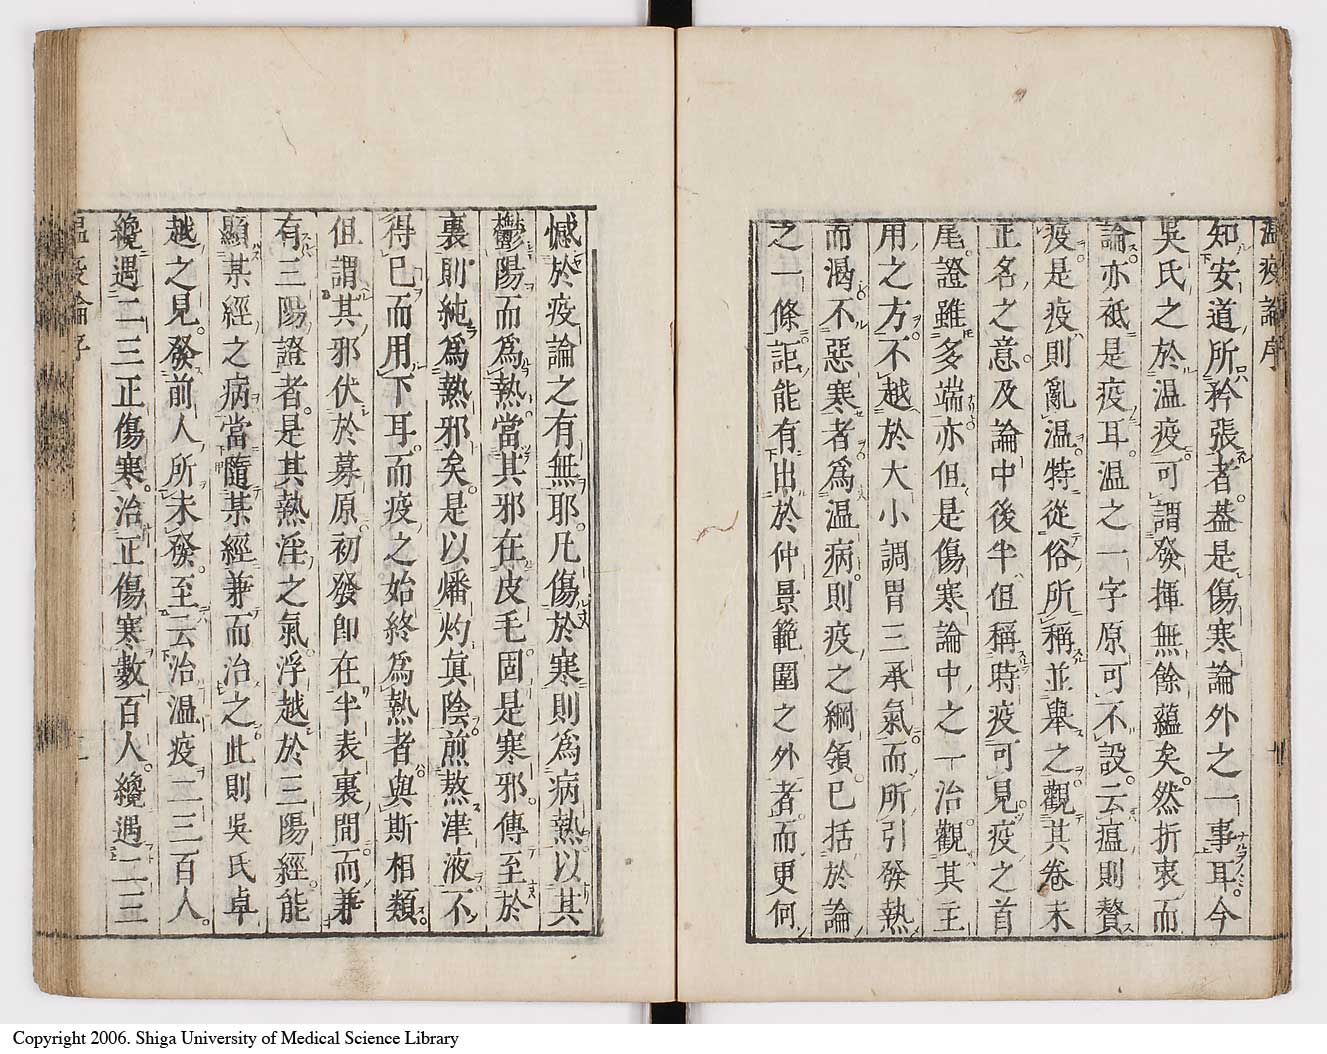 温疫論序
知安道所矜張者蓋是傷寒論外之一事耳今
吳氏之於温疫可謂發揮無餘蘊矣然折衷而
論亦祗是疫耳温之一字原可不設云瘟則贅
疫是疫則亂温特從俗所稱並舉之觀其卷末
正名之意及論中後半但稱時疫可見疫之首
尾證雖多端亦但是傷寒論中之一治觀其主
用之方不越於大小調胃三承氣而所引發熱
而渴不惡寒者爲温病則疫之綱領已括於論
之一條詎能有出於仲景範圍之外者而更何
憾於疫論之有無耶凡傷於寒則爲病熱以其
鬱陽而爲熱當其邪在皮毛固是寒邪傳至於
裏則純爲熱邪矣是以燔灼眞陰煎熬津液不
得已而用下耳而疫之始終爲熱者與斯相類
但謂其邪伏於募原初發卽在半表裏間而兼
有三陽證者是其熱淫之氣浮越於三陽經能
顯某經之病當隨某經兼而治之此則吳氏卓
越之見發前人所未發至云治温疫二三百人
纔遇二三正傷寒治正傷寒數百人纔遇二三
温疫論序
Copyright 2006. Shiga University of Medical Science Library